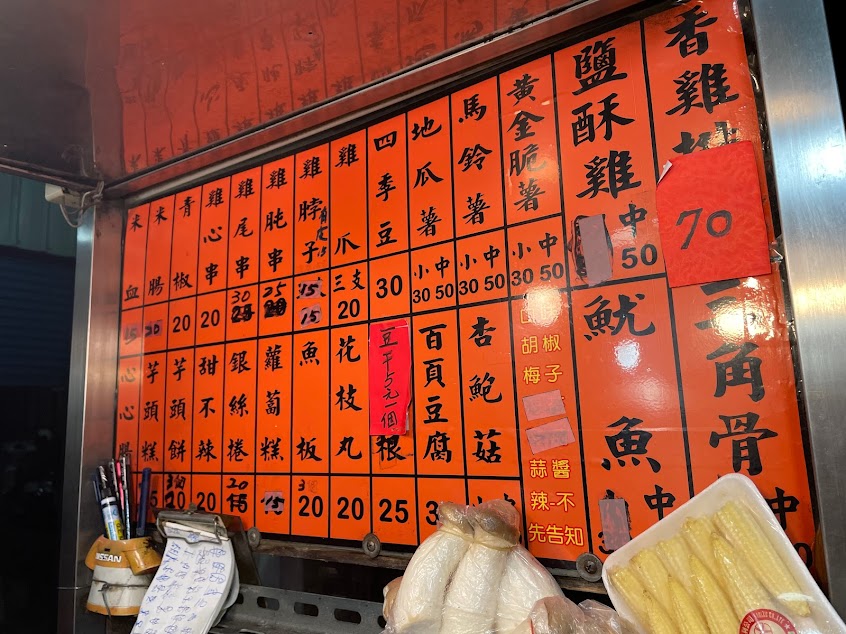 香雞
70
鹽酥雞
中
50
黃金脆薯
小 中
30 50
馬鈴薯
小 中
30 50
地瓜薯
小 中
30 50
四季豆
30
雞爪
三支
20
雞脖子
15
雞肫串
25
雞尾串
30
雞心串
20
青椒
20
米腸
20
米血
15
三角骨
中
魷魚
中
胡椒
梅子
蒜 醬
辣-不
先告知
杏鮑菇
小 中
百頁豆腐
豆干5元一個
根
25
花枝丸
20
魚板
20
蘿蔔糕
15
銀絲捲
20
甜不辣
20
芋頭餅
20
芋頭糕
心心腸
NISSAN